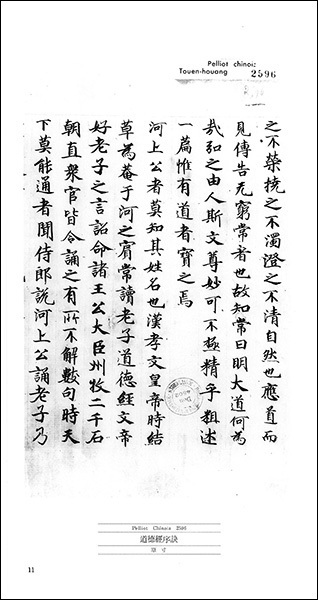 Pelliot chinois
Touen-houang 2596
之不榮撓之不濁澄之不清自然也應道而
見傳告无窮常者也故知常曰明大道何為
哉弘之由人斯文尊妙可不極精乎粗述
一篇惟有道者寶之焉
河上公者莫知其姓名也漢孝文皇帝時結
草為菴于河之賓常讀老子道德經文帝
好老子之言詔命諸王公大臣州牧二千石
朝直衆官皆令誦之有所不解數句時天
下莫能通者聞侍郎說河上公誦老子乃
Pelliot Chinois 2596
道德經序訣
原寸
11